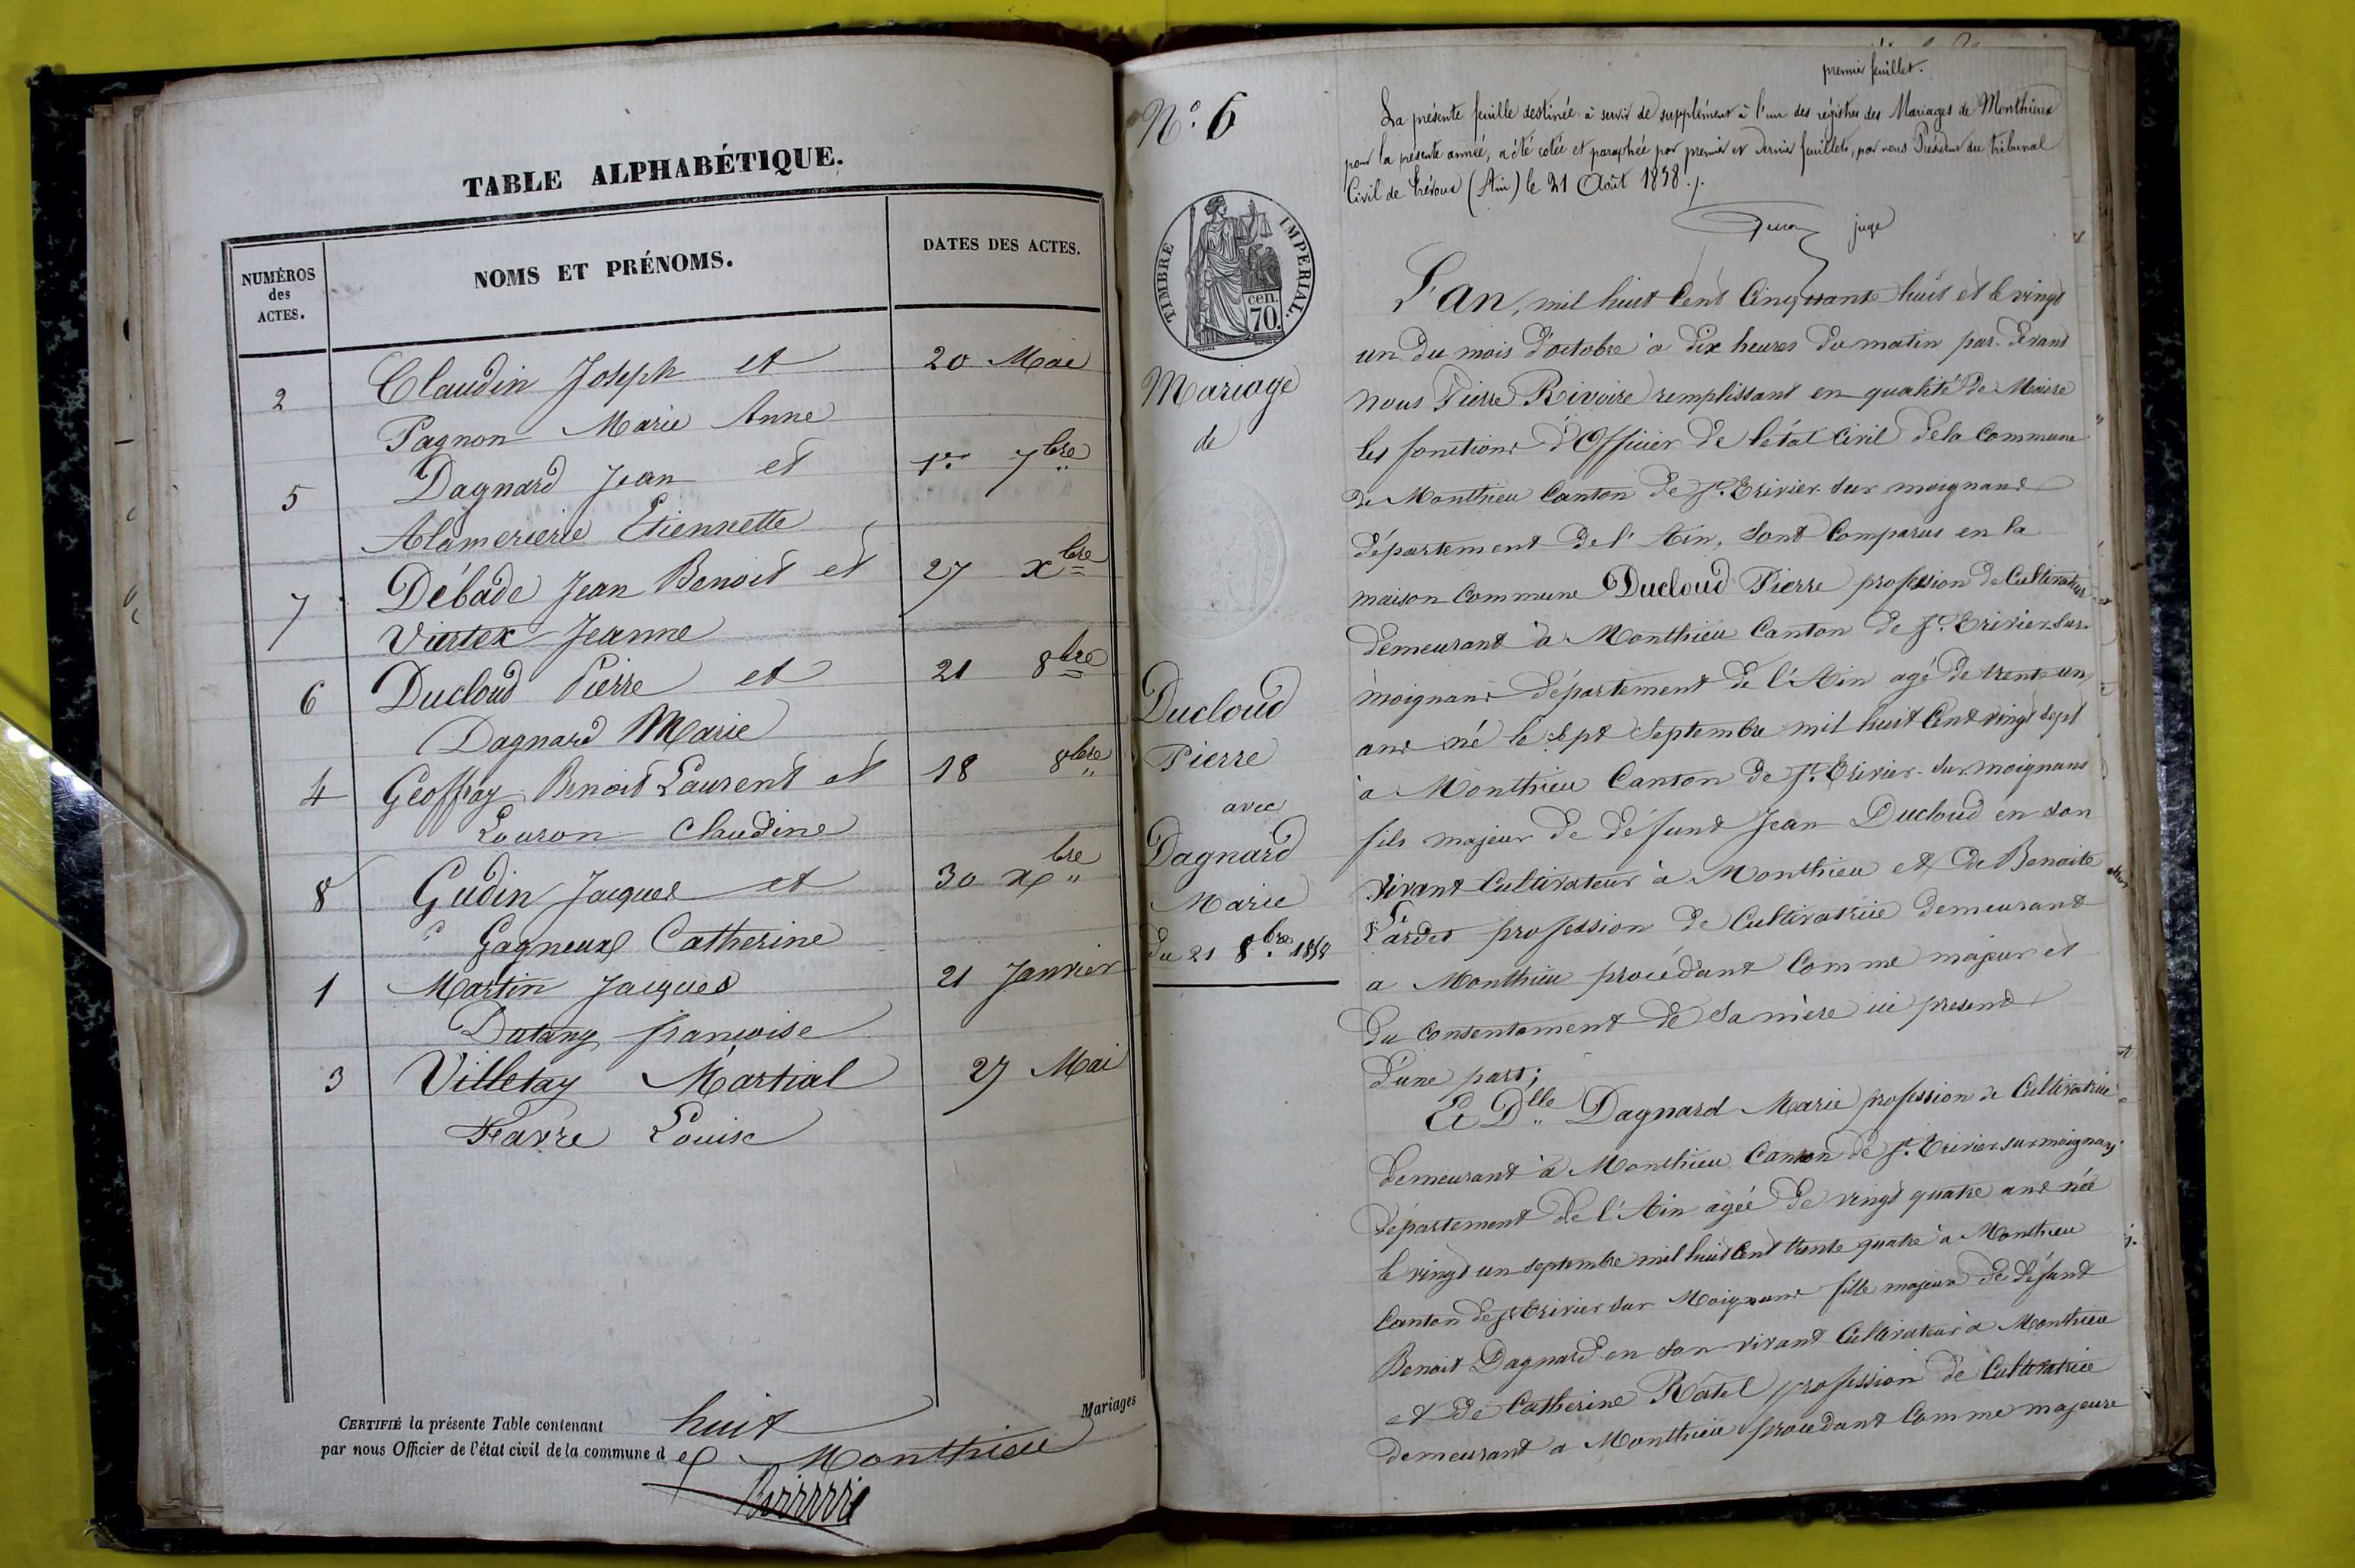 TABLE ALPHABÉTIQUE.
NUMÉROS
des
ACTES.
NOMS ET PRÉNOMS.
DATES DES ACTES.
2 Claudin Joseph et 20 Mai
Pagnon Marie Anne
5 Dagnard Jean et 1er 7bre
Alamerierie Etiennette
7 Débade Jean Benoit et 27 xbre
Viertex Jeanne
6 Ducloud Pierre et 21 8bre
Dagnard Marie
4 Geoffray Benoit Laurent et 18 8bre
Louron Claudine
8 Gudin Jacques et 30 xbre
Gagneux Catherine
1 Martin Jacques 21 Janvier
Dutang françoise
3 Villetay Martial 27 Mai
Favre Louise
CERTIFIÉ la présente Table contenant huit Mariages
par nous Officier de l'état civil de la commune de Monthieu
premier feuillet.
N° 6
La présente feuille destinée à servir de supplément à l'un des régistres des Mariages de Monthieux
pour la présente année, a été cotée et paraphée par premier et dernier feuillets, par nous Président du tribunal
Civil de Trévoux (Ain) le 21 Août 1858./.
juge
TIMBRE IMPERIAL.
cen.
70.
Mariage
de
Ducloud
Pierre
avec
Dagnard
Marie
du 21 8bre 1858
L'an, mil huit Cent Cinquante huit et le vingt
un du mois d'octobre à dix heures du matin par-devant
nous Pierre Rivoire remplissant en qualité de Maire
les fonctions d'Officier de l'état Civil de la Commune
de Monthieu Canton de St. Trivier-sur moignans
département de l'Ain, sont Comparus en la
maison Commune Ducloud Pierre profession de Cultivateur
demeurant à Monthieu Canton de St. Trivier-sur-
moignans département de l'Ain agé de trente un
ans né le sept Septembre mil huit Cent vingt sept
à Monthieu Canton de St. Trivier-sur moignans
fils majeur de défunt Jean Ducloud en son
vivant Cultivateur à Monthieu et de Benoite
Lardet profession de Cultivatrice demeurant
a Monthieu procédant Comme majeur et
du consentement de sa mère ici present
d'une part;
Et Dlle Dagnard Marie profession de Cultivatrice
demeurant à Monthieu Canton de St. Trivier sur moignans
département de l'Ain agée de vingt quatre ans née
le vingt un septembre mil huit Cent trente quatre à Monthieu
Canton de St Trivier sur Moignans fille majeur de défunt
Benoit Dagnard en son vivant Cultivateur a Monthieu
et de Catherine Ratel profession de Cultivatrice
demeurant a Monthieu procedant Comme majeure